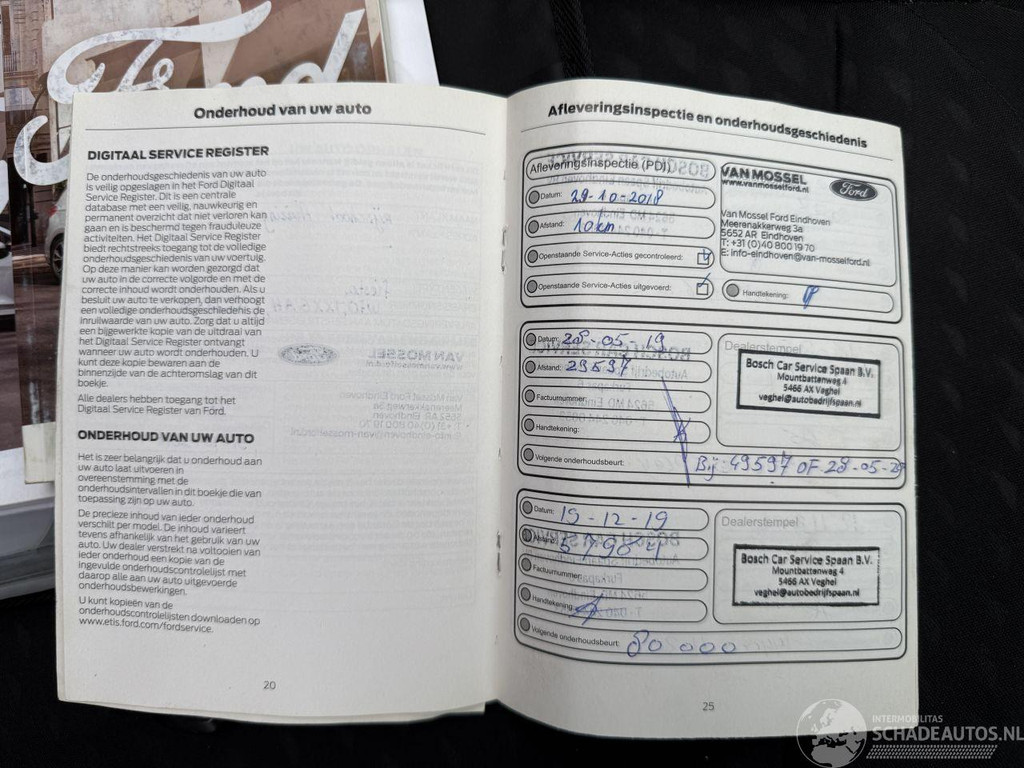 Ford
Onderhoud van uw auto
DIGITAAL SERVICE REGISTER
De onderhoudsgeschiedenis van uw auto
is veilig opgeslagen in het Ford Digitaal
Service Register. Dit is een centrale
database met een veilig, nauwkeurig en
permanent overzicht dat niet verloren kan
gaan en is beschermd tegen frauduleuze
activiteiten. Het Digitaal Service Register
biedt rechtstreeks toegang tot de volledige
onderhoudsgeschiedenis van uw voertuig.
Op deze manier kan worden gezorgd dat
uw auto in de correcte volgorde en met de
correcte inhoud wordt onderhouden. Als u
besluit uw auto te verkopen, dan verhoogt
een volledige onderhoudsgeschiedenis de
inruilwaarde van uw auto. Zorg dat u altijd
een bijgewerkte kopie van de uitdraai van
het Digitaal Service Register ontvangt
wanneer uw auto wordt onderhouden. U
kunt deze kopie bewaren aan de
binnenzijde van de achteromslag van dit
boekje.
Alle dealers hebben toegang tot het
Digitaal Service Register van Ford.
ONDERHOUD VAN UW AUTO
Het is zeer belangrijk dat u onderhoud aan
uw auto laat uitvoeren in
overeenstemming met de
onderhoudsintervallen in dit boekje die van
toepassing zijn op uw auto.
De precieze inhoud van ieder onderhoud
verschilt per model. De inhoud varieert
tevens afhankelijk van het gebruik van uw
auto. Uw dealer verstrekt na voltooien van
ieder onderhoud een kopie van de
ingevulde onderhoudscontrolelijst met
daarop alle aan uw auto uitgevoerde
onderhoudsbewerkingen.
U kunt kopieën van de
onderhoudscontrolelijsten downloaden op
www.etis.ford.com/fordservice.
20
Afleveringsinspectie en onderhoudsgeschiedenis
Afleveringsinspectie (PDI)
Datum: 29-10-2018
Afstand: 10km
Openstaande Service-Acties gecontroleerd:
Openstaande Service-Acties uitgevoerd:
VAN MOSSEL
www.vanmosselford.nl
Ford
Van Mossel Ford Eindhoven
Meerenakkerweg 3a
5652 AR Eindhoven
T: +31 (0)40 800 19 70
E: info-eindhoven@van-mosselford.nl
Handtekening:
Datum: 28-05-19
Afstand: 29597
Factuurnummer:
Handtekening:
Volgende onderhoudsbeurt: Bij: 49597 OF 28-05-20
Dealerstempel
Bosch Car Service Spaan B.V.
Mountbattenweg 4
5466 AX Veghel
veghel@autobedrijfspaan.nl
Datum: 19-12-19
Afstand:
Factuurnummer:
Handtekening:
Volgende onderhoudsbeurt: 80 000
Dealerstempel
Bosch Car Service Spaan B.V.
Mountbattenweg 4
5466 AX Veghel
veghel@autobedrijfspaan.nl
25
INTERMOBILITAS
SCHADEAUTOS.NL